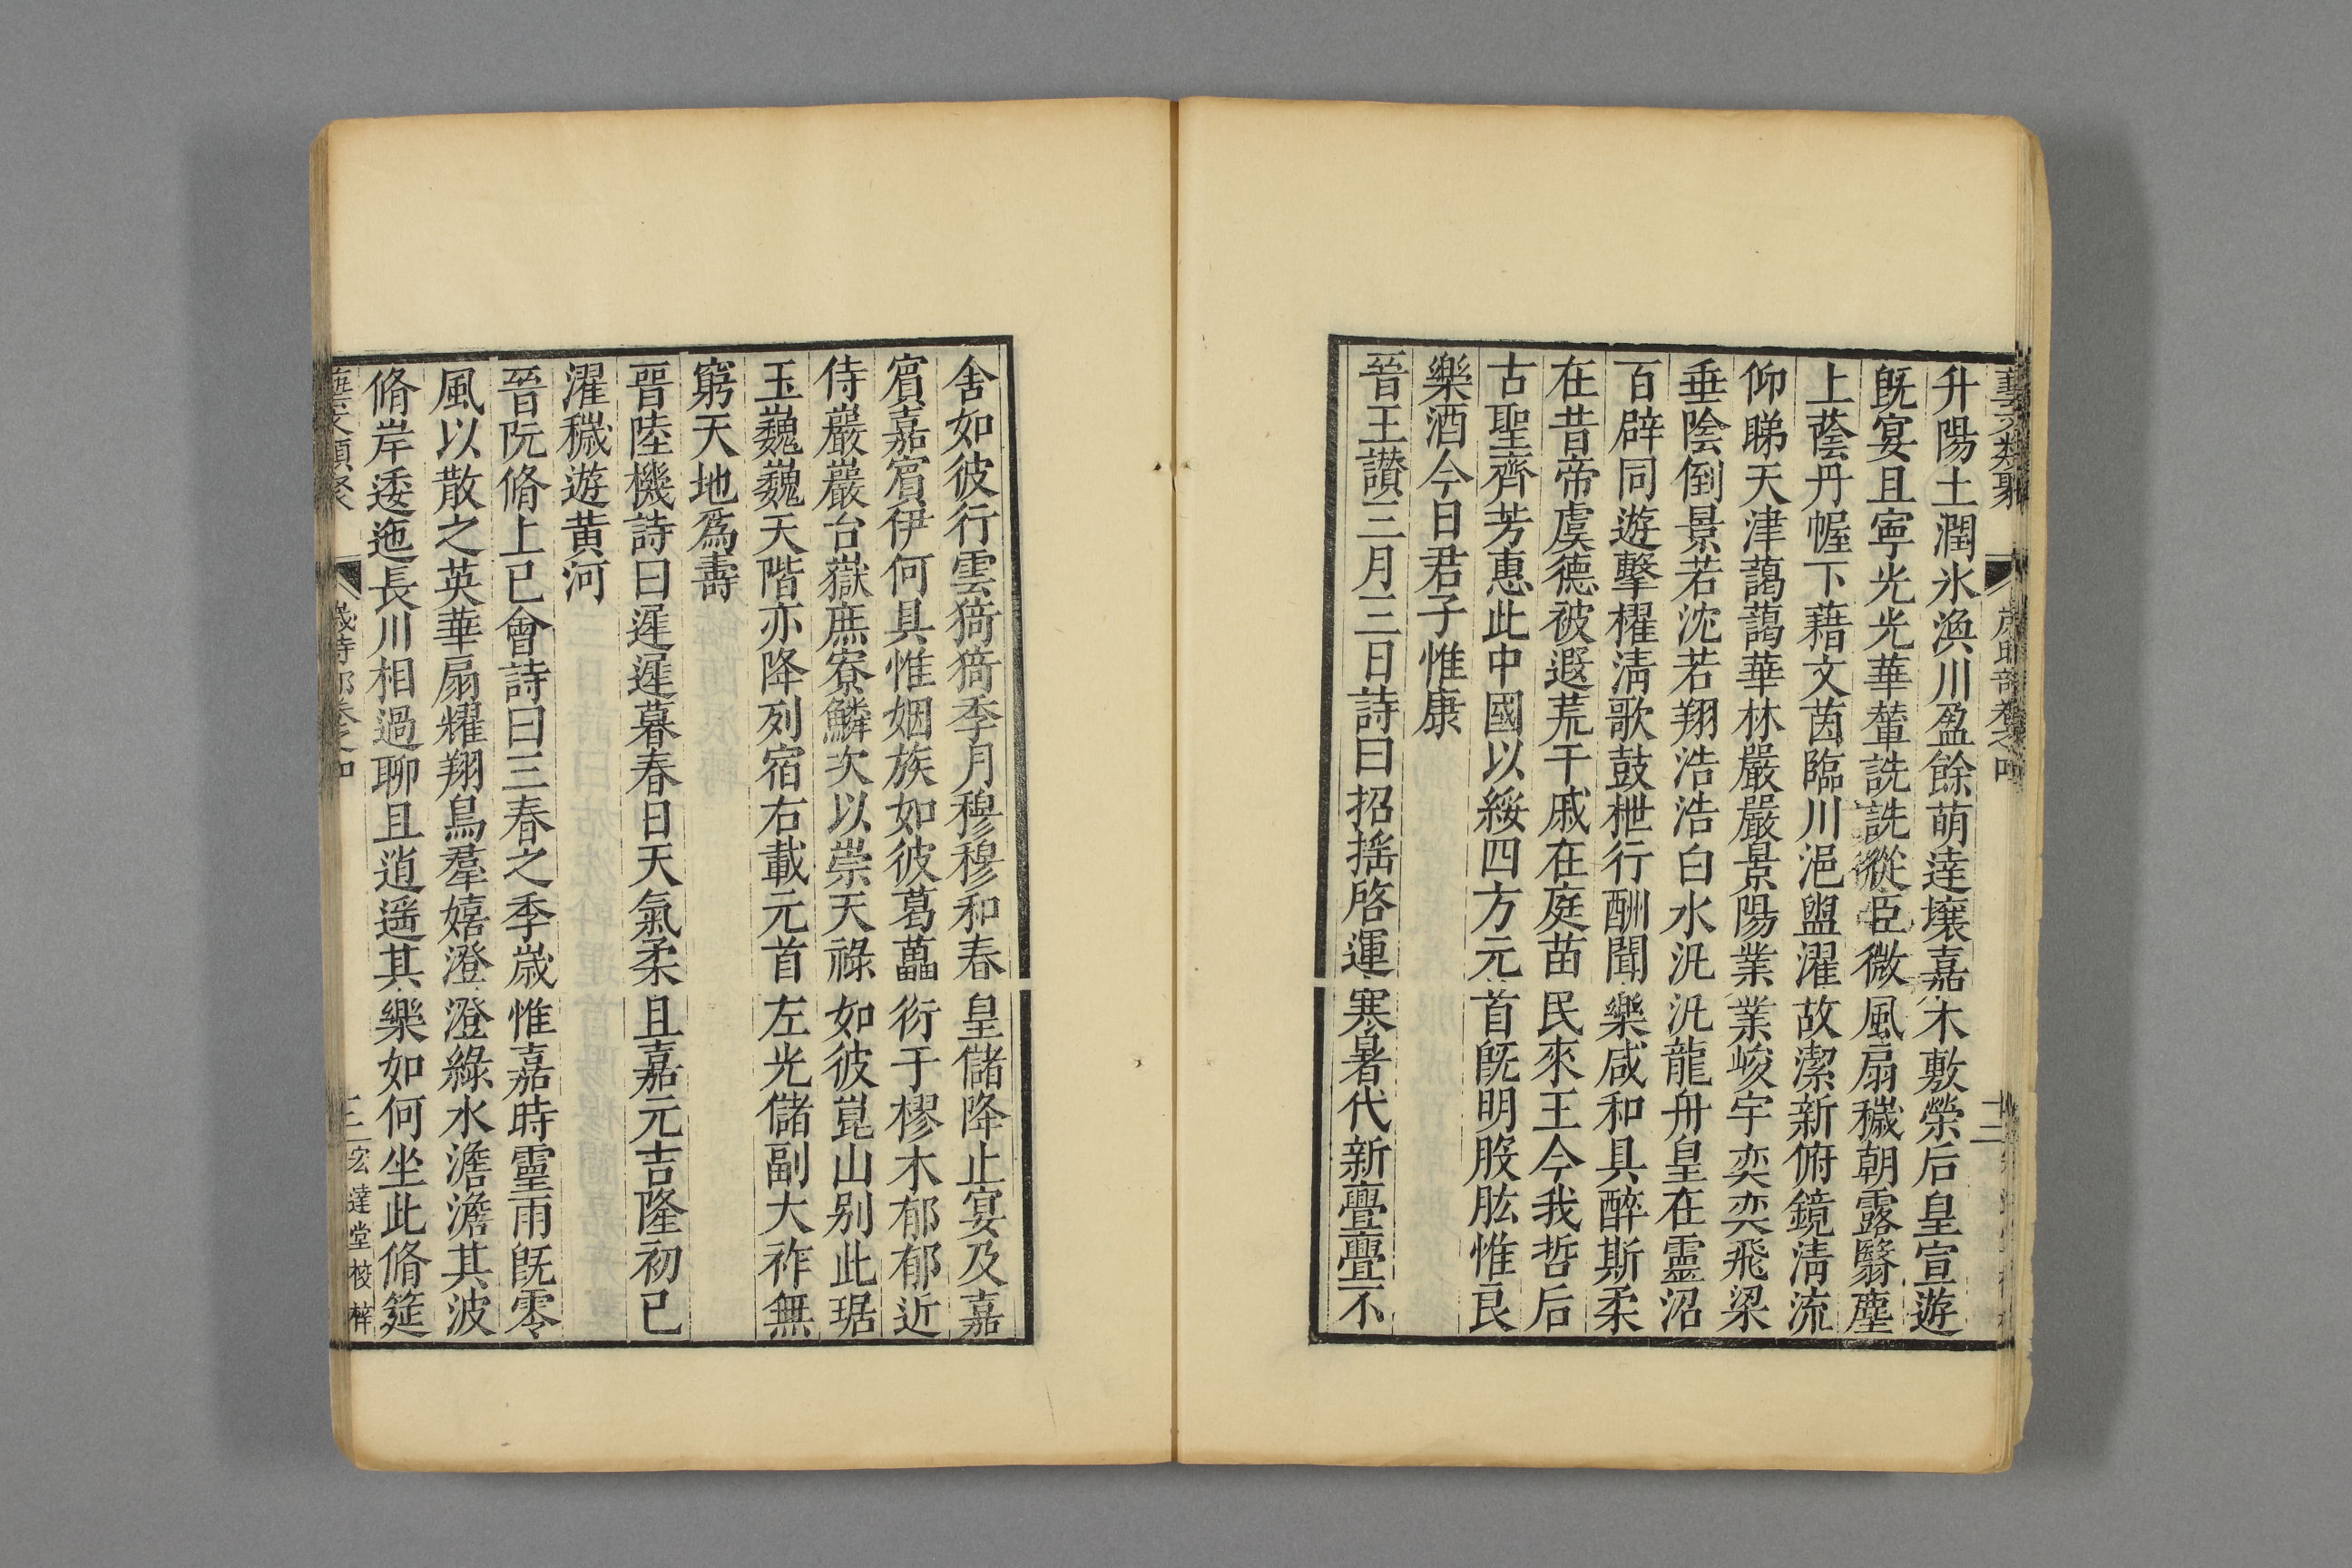 升陽土潤氷渙川盈餘萌達壤嘉木敷榮后皇宣遊
旣宴且寕光光華輦詵詵從臣微風扇穢朝露翳塵
上蔭丹幄下藉文茵臨川浥盥濯故潔新俯鏡淸流
仰睇天津藹藹華林嚴嚴景陽業業峻宇奕奕飛梁
垂陰倒景若沈若翔浩浩白水汎汎龍舟皇在靈沼
百辟同遊擊櫂淸歌鼓枻行酬聞樂咸和具醉斯柔
在昔帝虞德被遐荒干戚在庭苗民來王今我哲后
古聖齊芳惠此中國以綏四方元首旣明股肱惟良
樂酒今日君子惟康
晉王讃三月三日詩曰招搖啓運寒暑代新亹亹不
舍如彼行雲猗猗季月穆穆和春皇儲降止宴及嘉
賓嘉賓伊何具惟姻族如彼葛藟衍于樛木郁郁近
侍巖巖台嶽庶寮鱗次以崇天祿如彼崑山别此琚
玉巍巍天階亦降列宿右載元首左光儲副大祚無
窮天地爲壽
晉陸機詩曰遲遲暮春日天氣柔且嘉元吉隆初巳
濯穢遊黄河
晉阮脩上巳會詩曰三春之季歲惟嘉時靈雨旣零
風以散之英華扇耀翔鳥羣嬉澄澄綠水澹澹其波
脩岸逶迤長川相過聊且逍遥其樂如何坐此脩筵
藝文類聚 歲時部卷之四 三 宏達堂校梓